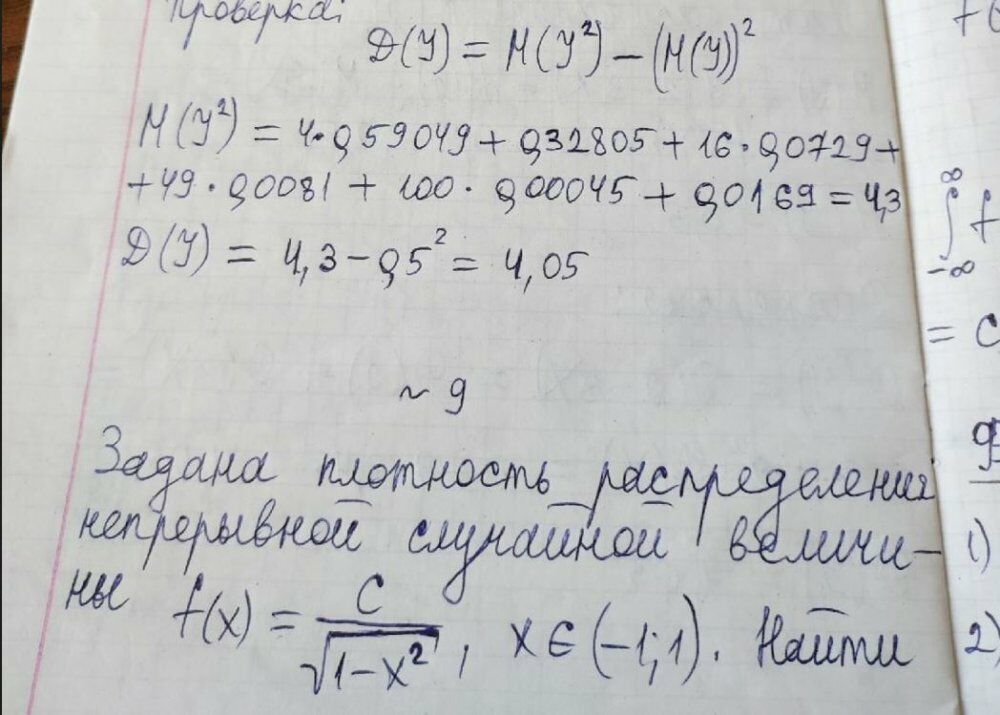 Проверка:
D(Y) = M(Y²) – (M(Y))²
M(Y²) = 4·0,59049 + 0,32805 + 16·0,0729 +
+ 49·0,0081 + 100·0,00045 + 0,0169 = 4,3
D(Y) = 4,3 – 0,5² = 4,05
~ 9
Задана плотность распределения
непрерывной случайной величи–
ны f(x) = C/√(1–x²), x ∈ (–1; 1). Найти
∞
∫ f
–∞
= C
1)
2)